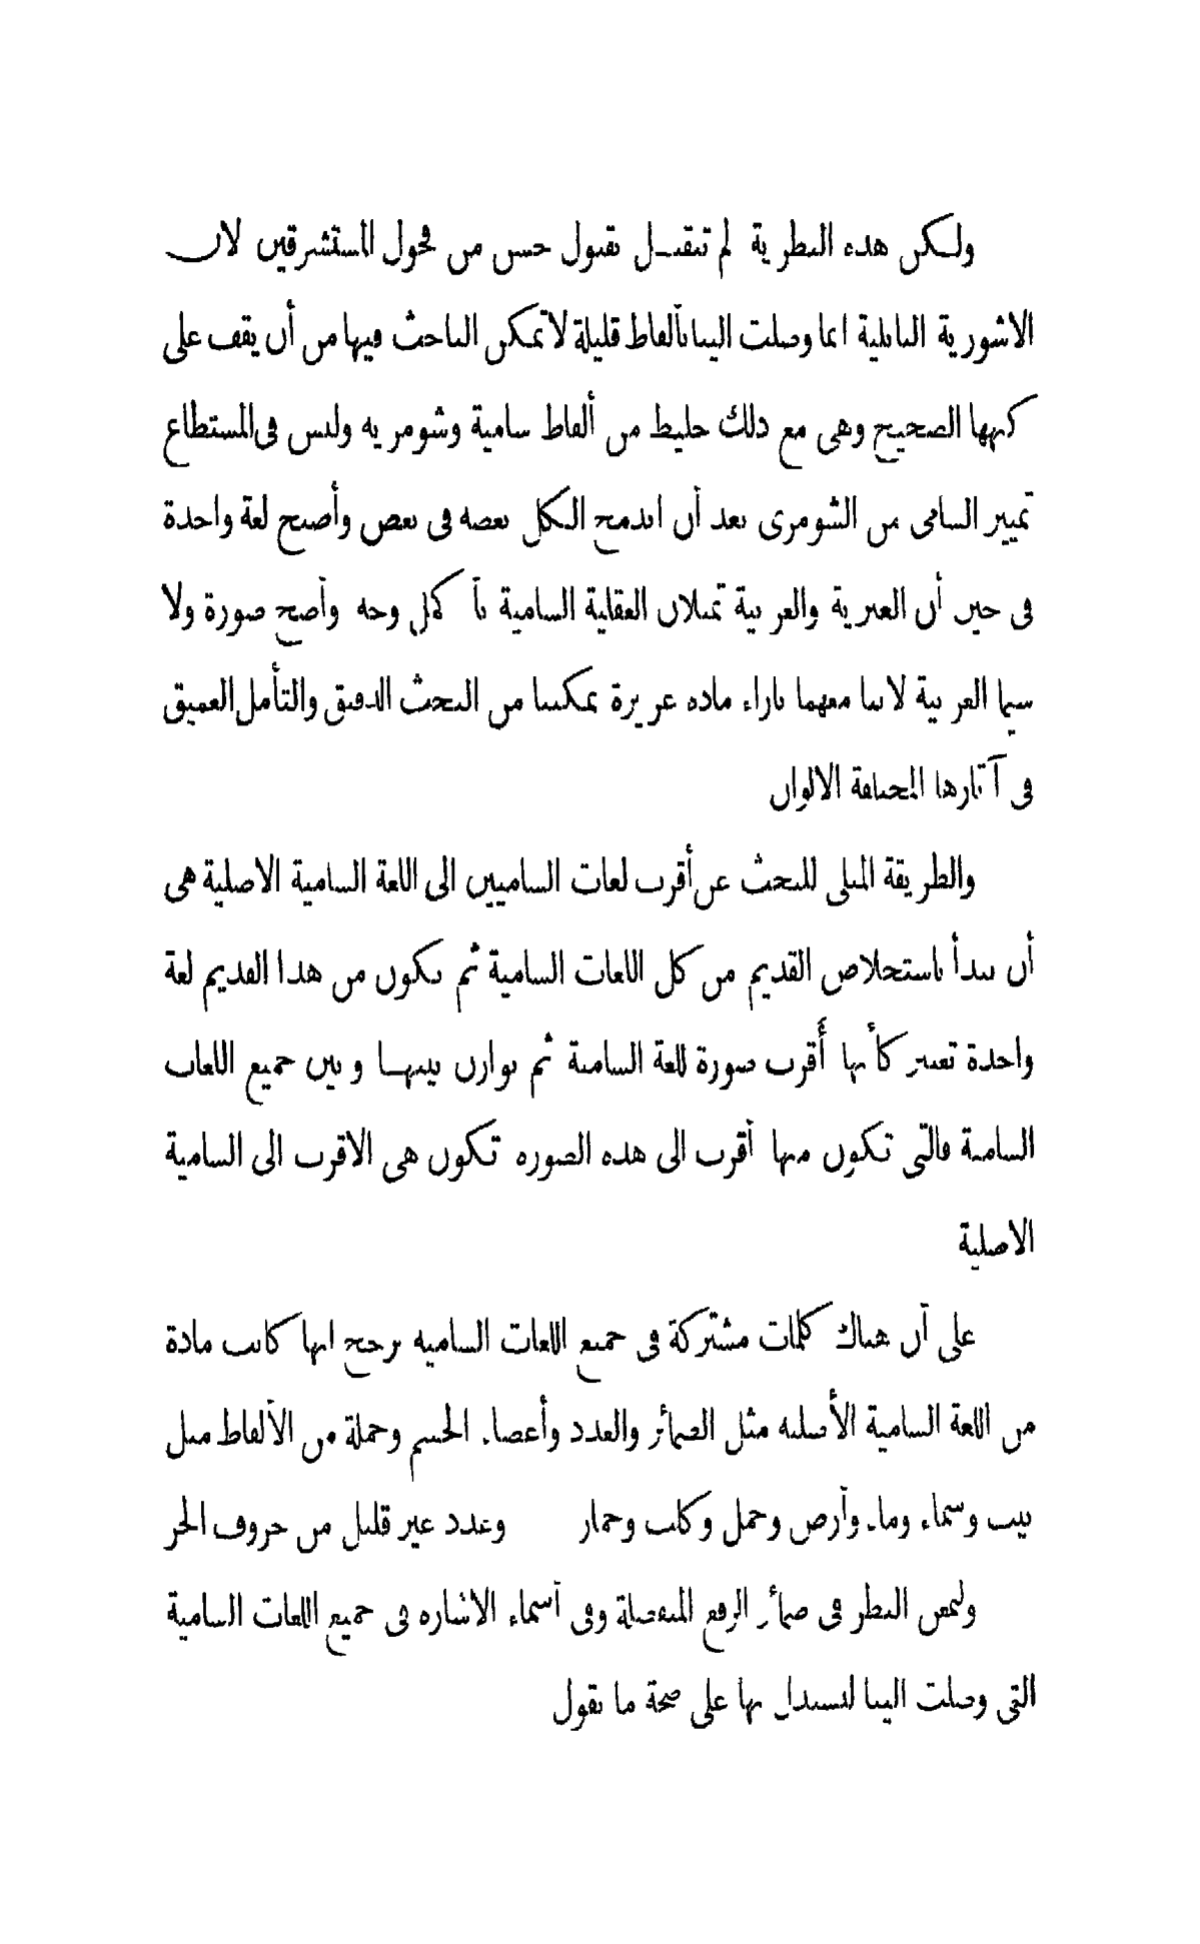 ولكن هذه النظرية لم تتقبل بقبول حسن من فحول المستشرقين لان
الاشورية البابلية انما وصلت الينا بألفاظ قليلة لا تمكن الباحث فيها من أن يقف على
كنهها الصحيح وهى مع ذلك خليط من ألفاظ سامية وشومرية وليس فى المستطاع
تمييز السامى من الشومرى بعد أن اندمج الكل بعضه فى بعض وأصبح لغة واحدة
فى حين أن العبرية والعربية تمثلان العقلية السامية بأكمل وجه وأصح صورة ولا
سيما العربية لاننا معهما بازاء مادة غزيرة تمكننا من البحث الدقيق والتأمل العميق
فى آثارها المختلفة الالوان
والطريقة المثلى للبحث عن أقرب لغات الساميين الى اللغة السامية الاصلية هى
أن نبدأ باستخلاص القديم من كل اللغات السامية ثم نكون من هذا القديم لغة
واحدة تعتبر كأنها أقرب صورة للغة السامية ثم نوازن بينها وبين جميع اللغات
السامية فالتى تكون منها أقرب الى هذه الصورة تكون هى الاقرب الى السامية
الاصلية
على أن هناك كلمات مشتركة فى جميع اللغات السامية يرجح انها كانت مادة
من اللغة السامية الأصلية مثل الضمائر والعدد وأعضاء الجسم وجملة من الألفاظ مثل
بيت وسماء وماء وأرض وجمل وكلب وحمار وعدد غير قليل من حروف الجر
ولنمعن النظر فى ضمائر الرفع المنفصلة وفى أسماء الاشارة فى جميع اللغات السامية
التى وصلت الينا لنستدل بها على صحة ما نقول